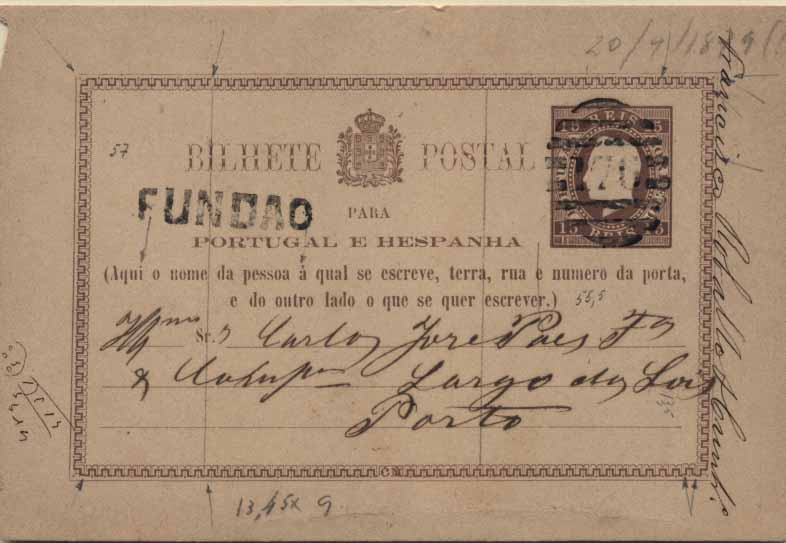 20/7/18
57
BILHETE POSTAL
15 REIS 15
15 REIS 15
FUNDAO
PARA
PORTUGAL E HESPANHA
(Aqui o nome da pessoa á qual se escreve, terra, rua e numero da porta,
e do outro lado o que se quer escrever.)
55,5
Sr. Carlos José Paes
& Largo dos Loios
Porto
C M
13,45x9
Francisco